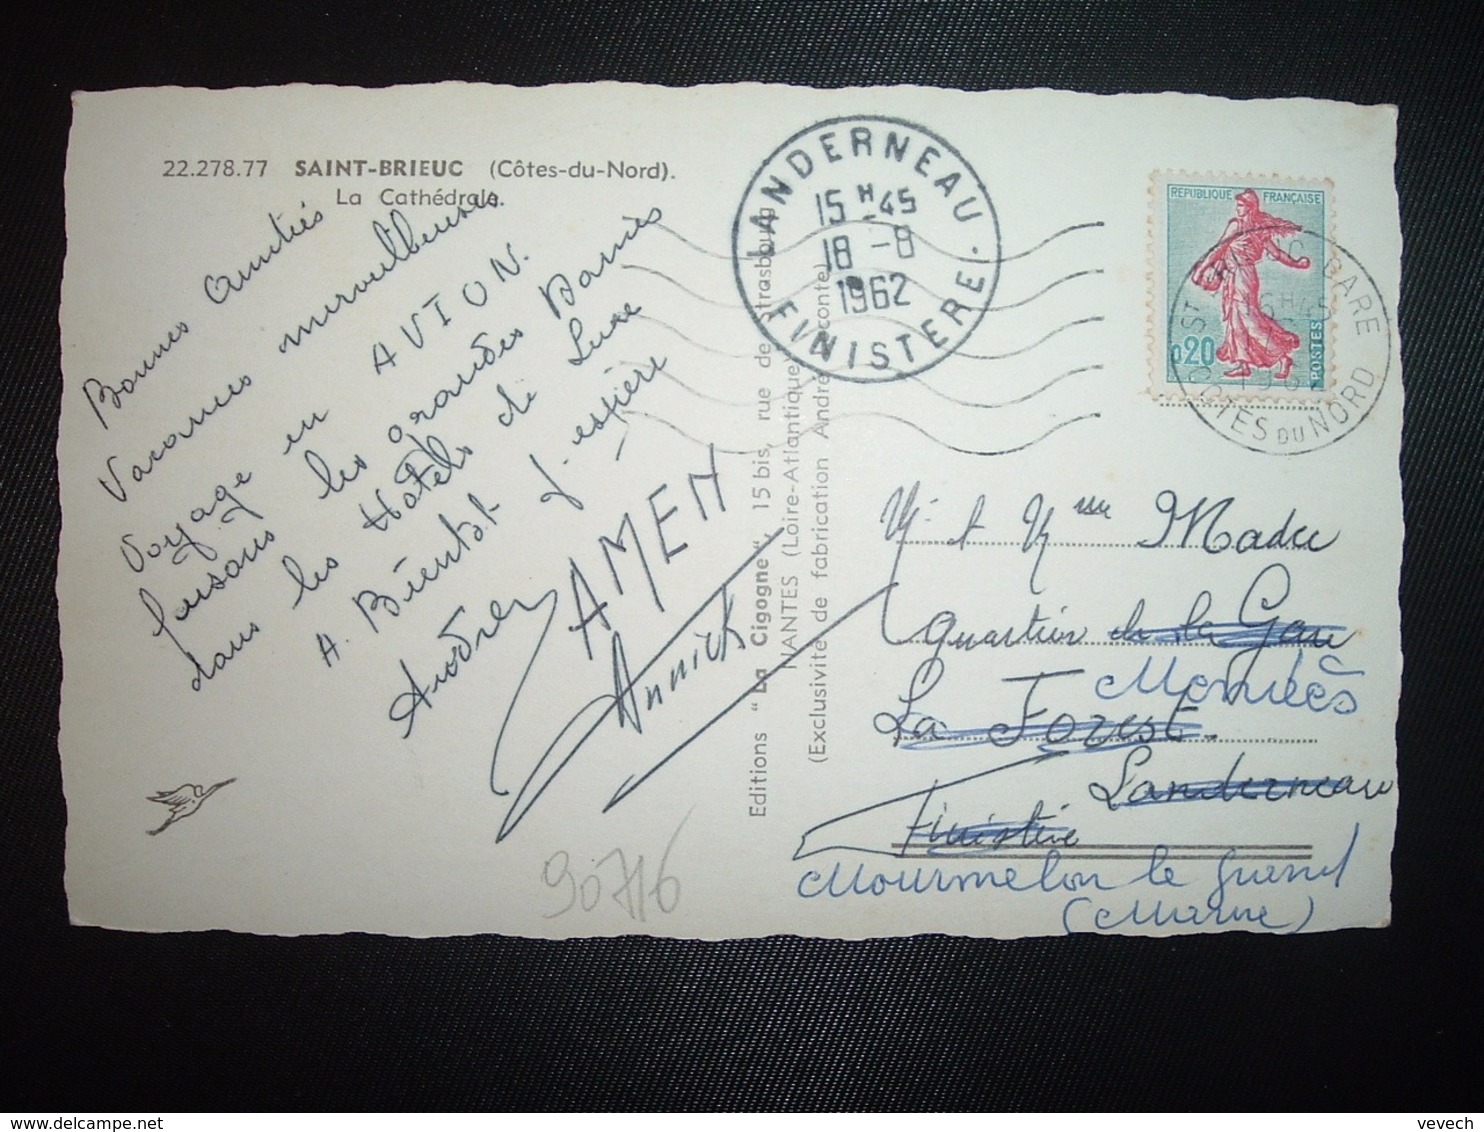 22.278.77 SAINT-BRIEUC (Côtes-du-Nord).
La Cathédrale.
Bonnes amitiés
Vacances merveilleuses
Voyage en AVION.
faisons les grandes Dames
dans les Hotels de Luxe
A Bientot j'espère
AMEN
Annick
Editions "La Cigogne", 15 bis, rue de Strasbourg
NANTES (Loire-Atlantique)
(Exclusivité de fabrication André conte)
LANDERNEAU
15 H 45
18 -8
1962
FINISTERE
REPUBLIQUE FRANÇAISE
0,20
POSTES
GARE
CÔTES DU NORD
M. et Mme Madec
quartier de la Gare
La Forest
Landerneau
Finistère
Mourmelon le grand
(Marne)
90716
vevech